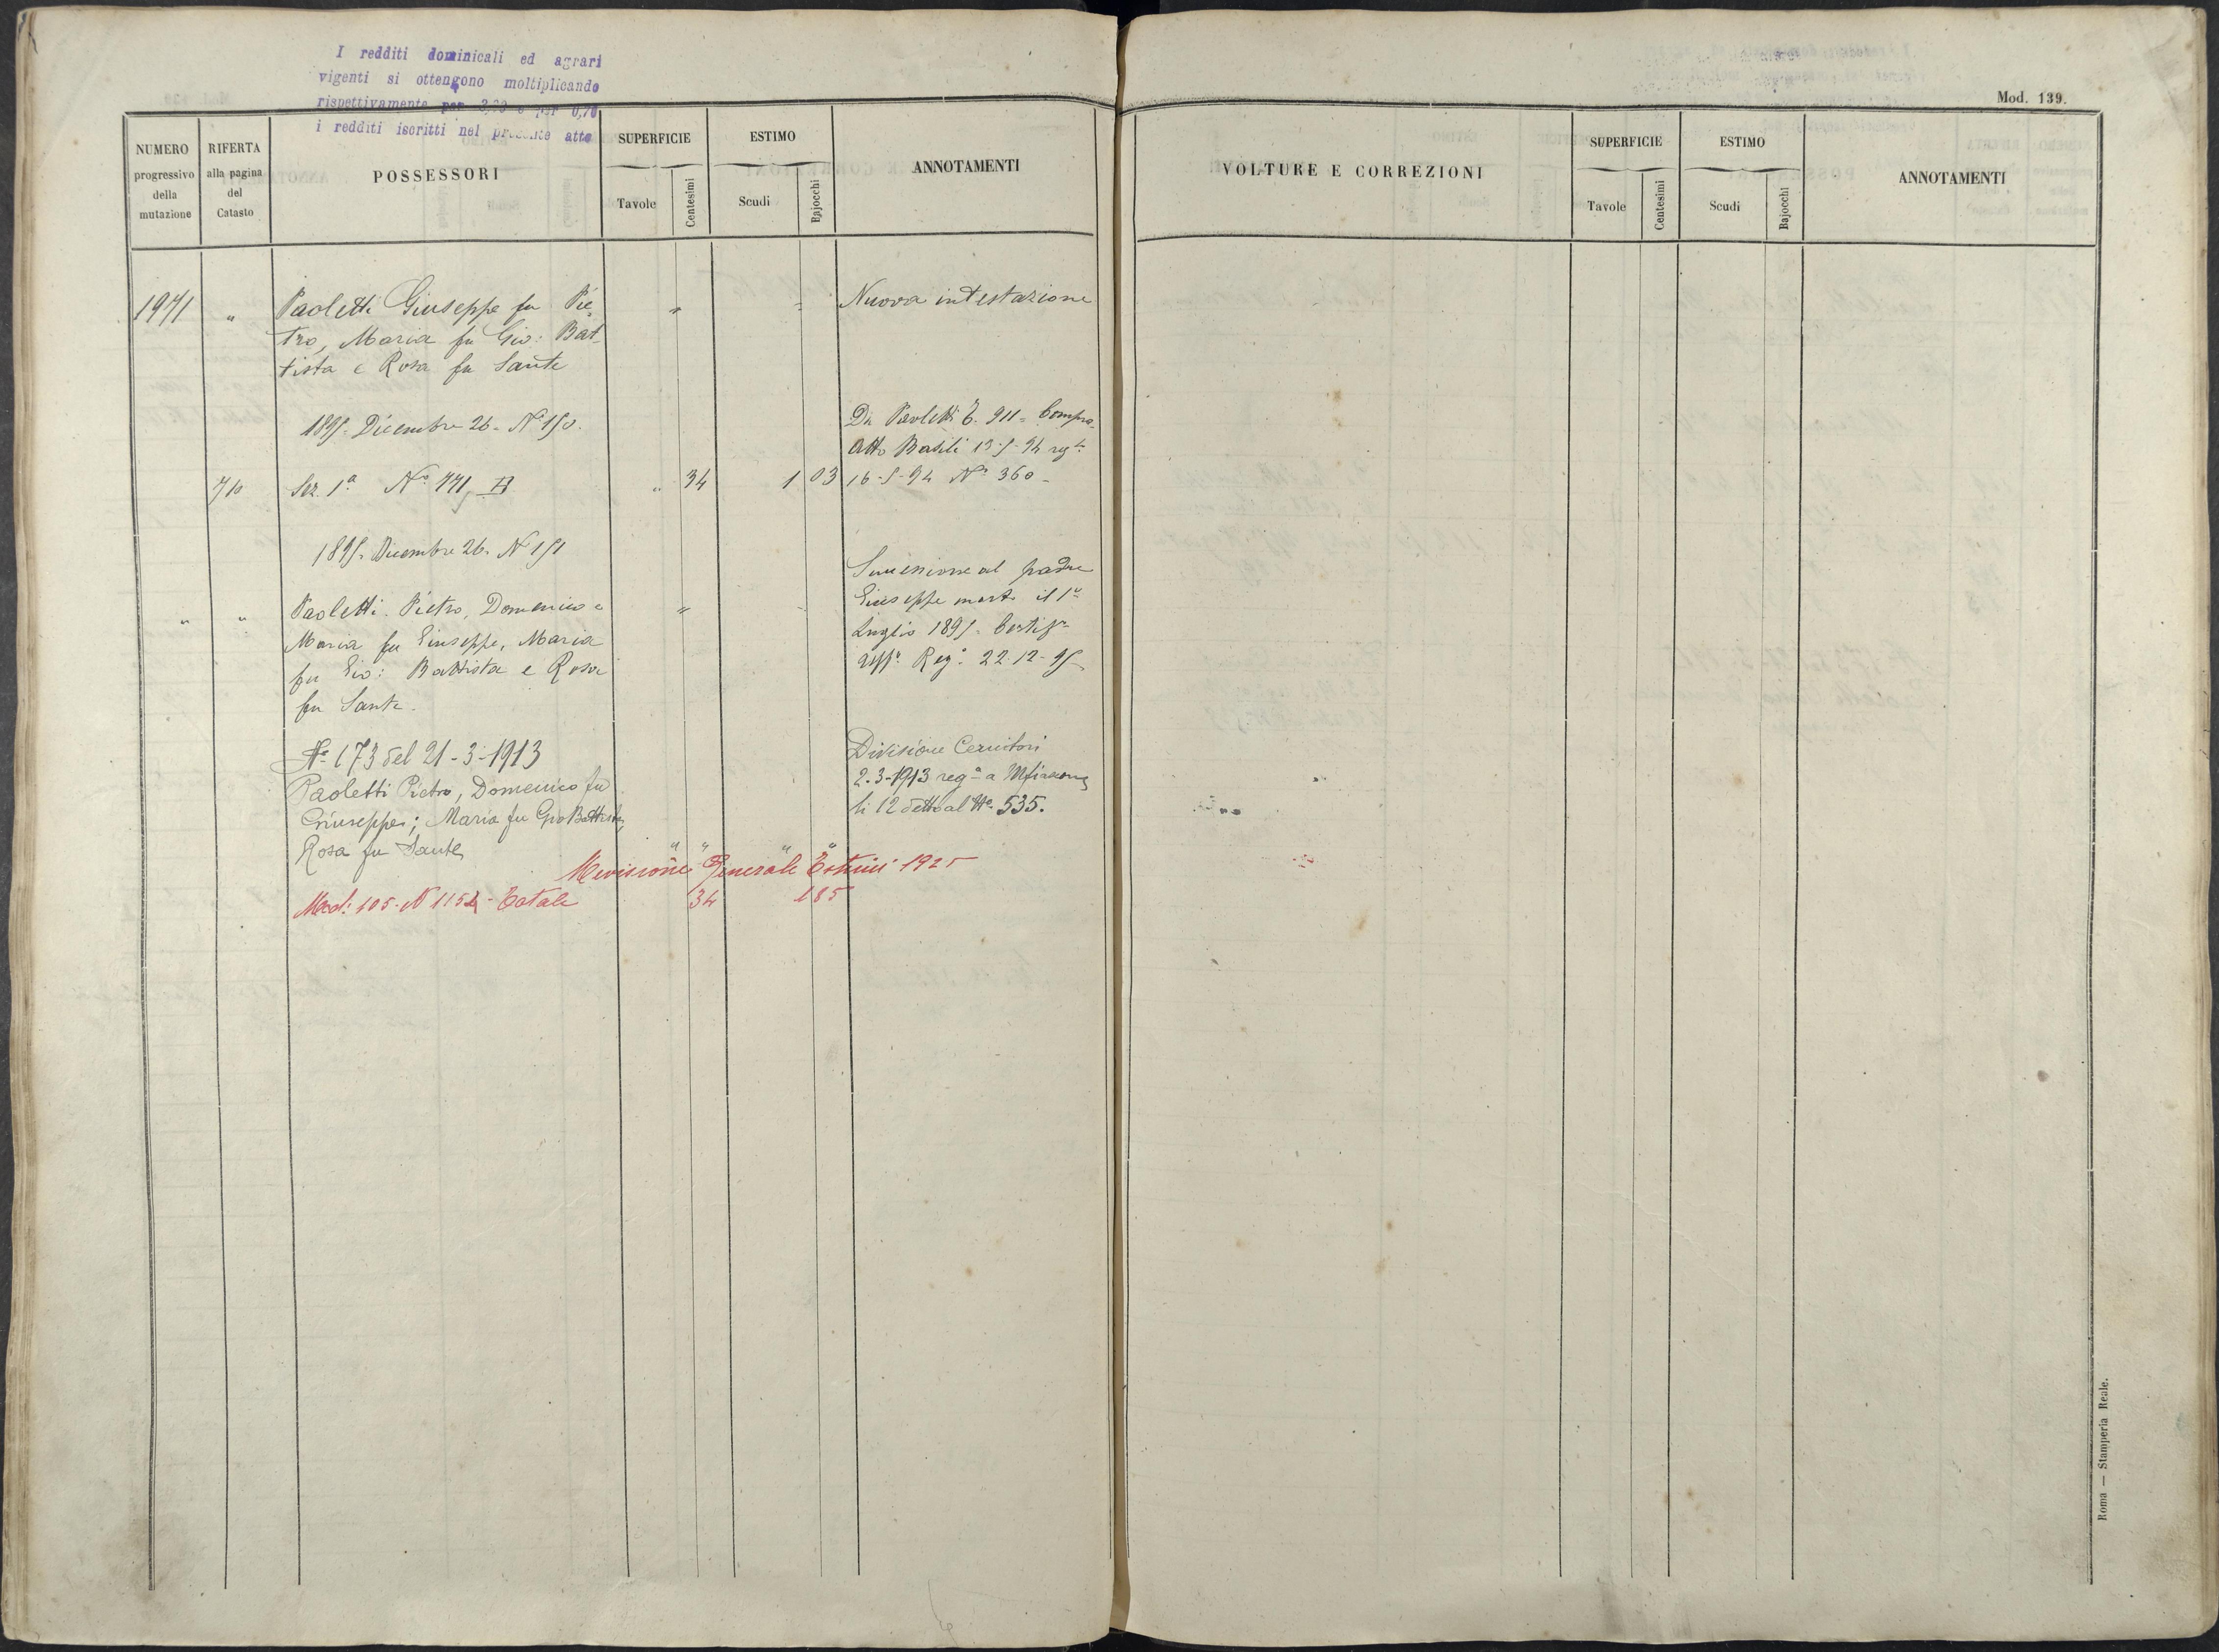 I redditi dominicali ed agrari
vigenti si ottengono moltiplicando
rispettivamente per 3,20 e per 0,70
i redditi iscritti nel presente atto
Mod. 139.
NUMERO progressivo della mutazione
RIFERTA alla pagina del Catasto
POSSESSORI
SUPERFICIE
Tavole Centesimi
ESTIMO
Scudi Bajocchi
ANNOTAMENTI
1971 " Paoletti Giuseppe fu Pie= " " Nuova intestazione
tro, Maria fu Gio: Bat
tista e Rosa fu Sante
1895. Dicembre 26. N° 150.
Da Paoletti E. 911 = Compra
Atto Basili 13-5-94 reg.to
710 Sez. 1a N° 771 " 34 1 03 16-5-94 N° 360 -
1895. Dicembre 26. N 151
Successione al padre
" " Paoletti Pietro, Domenico e " Giuseppe morto il 1°
Maria fu Giuseppe, Maria Luglio 1895.
fu Gio: Battista e Rosa Reg.o 22-12-95
fu Sante.
N° 173 del 21-3-1913 Divisione
Paoletti Pietro, Domenico fu 2-3-1913 reg.o a
Giuseppe; Maria fu Gio Battista, li 12 detto al N° 535.
Rosa fu Sante " " " "
Revisione Generale Estimi 1925
Mod: 105. N 1154 - Totale 34 185
VOLTURE E CORREZIONI
SUPERFICIE
Tavole Centesimi
ESTIMO
Scudi Bajocchi
ANNOTAMENTI
Roma — Stamperia Reale.